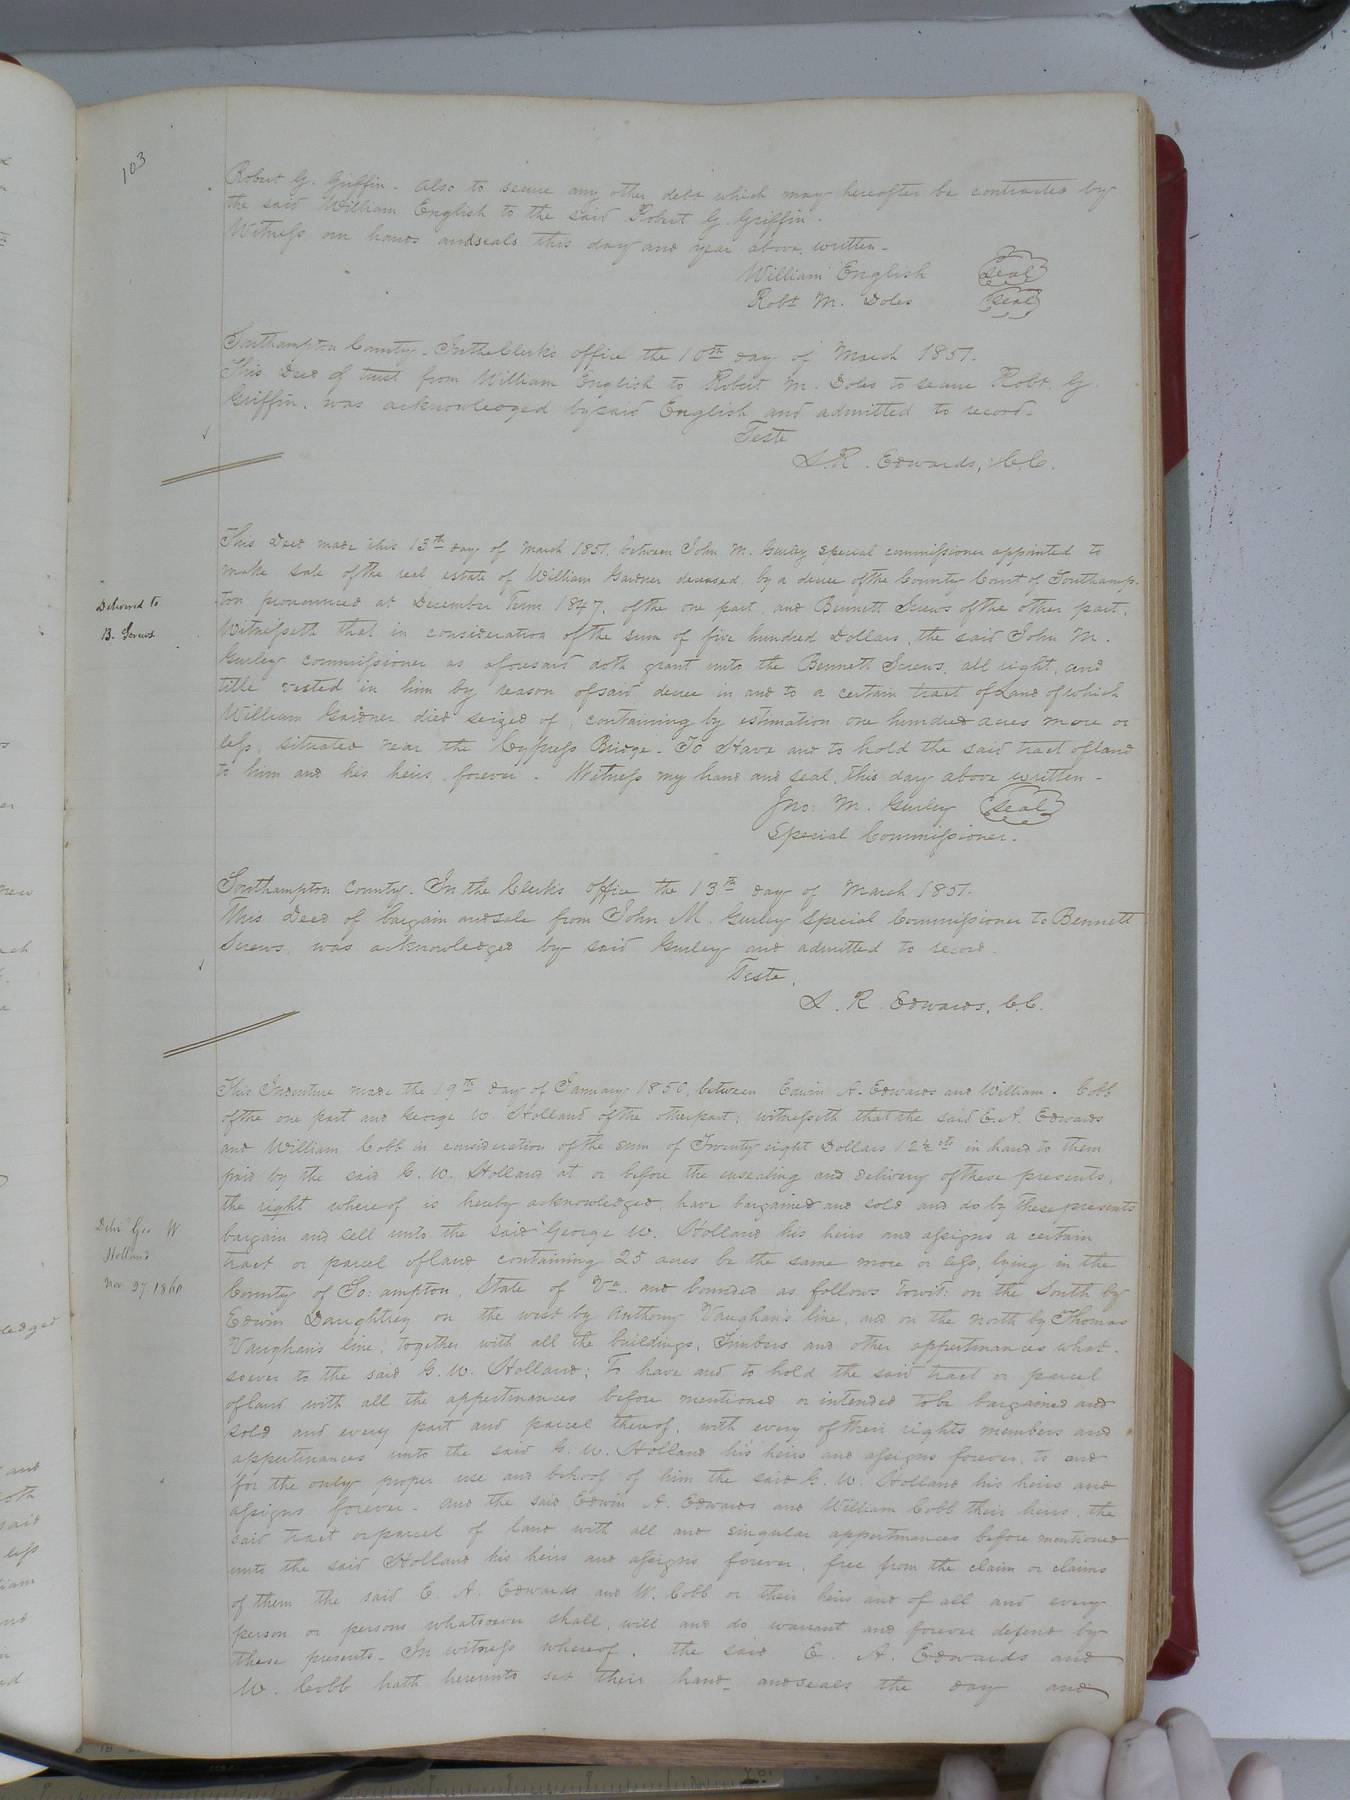 103
Robert G. Griffin. Also to secure any other debt which may hereafter be contracted by
the said William English to the said Robert G. Griffin.
Witness our hands and seals this day and year above written.
William English seal
Robt M. Doles seal
Southampton County. In the Clerk's office the 10th day of March 1851.
This Deed of trust from William English to Robert M. Doles to secure Robt. G.
Griffin, was acknowledged by said English and admitted to record.
Teste
L. R. Edwards, C.C.
This Deed made this 13th day of March 1851, between John M. Gurley special commissioner appointed to
make sale of the real estate of William Gardner deceased, by a decree of the County Court of Southamp-
Delivered to
ton pronounced at December Term 1847, of the one part, and Bennett Screws of the other part,
B. Screws
Witnesseth that in consideration of the sum of five hundred Dollars, the said John M.
Gurley commissioner as aforesaid doth grant unto the Bennett Screws, all right, and
title vested in him by reason of said decree in and to a certain tract of Land of which
William Gardner died seized of, containing by estimation one hundred acres more or
less, situated near the Cypress Bridge. To Have and to hold the said tract of land
to him and his heirs forever. Witness my hand and seal, this day above written.
Jno. M. Gurley seal
Special Commissioner.
Southampton County. In the Clerk's office the 13th day of March 1851.
This Deed of bargain and sale from John M. Gurley Special Commissioner to Bennett
Screws, was acknowledged by said Gurley and admitted to record.
Teste,
L. R. Edwards, C.C.
This Indenture made the 19th day of January 1850, between Edwin A. Edwards and William. Cobb
of the one part and George W. Holland of the other part; witnesseth that the said E. A. Edwards
and William Cobb in consideration of the sum of Twenty eight Dollars 12½ cts in hand to them
paid by the said G. W. Holland at or before the ensealing and delivery of these presents,
the right whereof is hereby acknowledged, have bargained and sold and do by these presents
Delv. Geo W
bargain and sell unto the said George W. Holland his heirs and assigns a certain
Holland
tract or parcel of land containing 25 acres be the same more or less, lying in the
Nov 27. 1860
County of So: ampton, State of Va. and bounded as follows Towit: on the South by
Edwin Daughtrey on the west by Anthony Vaughan's line, and on the north by Thomas
Vaughan's line, together with all the buildings, Timbers and other appertinances what-
soever to the said G. W. Holland; To have and to hold the said tract or parcel
of land with all the appertinances before mentioned or intended to be bargained and
sold and every part and parcel thereof, with every of their rights members and
appertinances unto the said G. W. Holland his heirs and assigns forever, to and
for the only proper use and behoof of him the said G. W. Holland his heirs and
assigns forever. And the said Edwin A. Edwards and William Cobb their heirs, the
said tract or parcel of land with all and singular appertinances before mentioned
unto the said Holland his heirs and assigns forever, free from the claim or claims
of them the said E. A. Edwards and W. Cobb or their heirs and of all and every
person or persons whatsoever shall, will and do warrant and forever defend by
these presents. In witness whereof, the said E. A. Edwards and
W. Cobb hath hereunto set their hand and seals the day and